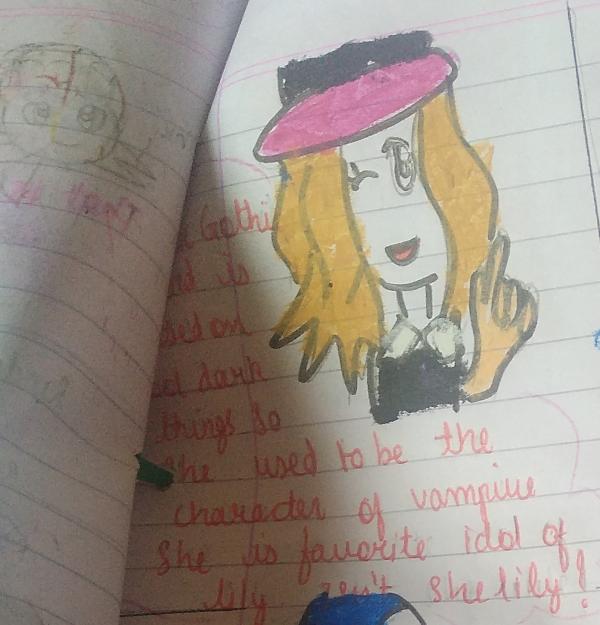 Gothi
is
sed on
d dark
things so
she used to be the
character of vampiue
She is favorite idol of
lily isn't she lily!